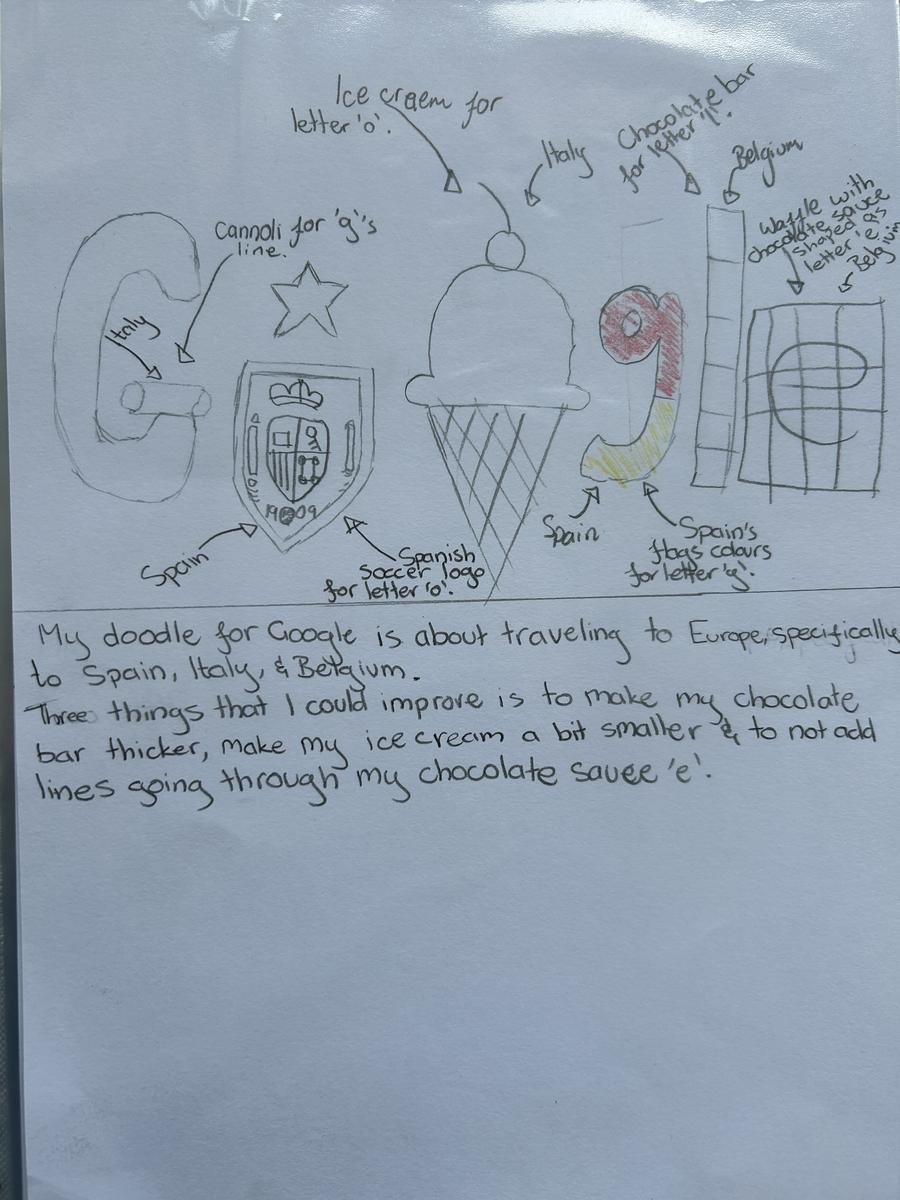 Ice craem for
letter 'o'.
Italy
Chocolate bar
for letter 'l'.
Belgium
Waffle with
chocolate sauce
shaped as
letter 'e'.
Belgium
Cannoli for 'g's
line.
Italy
1909
Spain
Spanish
soccer logo
for letter 'o'.
g
Spain
Spain's
flags colours
for letter 'g'.
e
My doodle for Google is about traveling to Europe, specifically
to Spain, Italy, & Belgium.
Three things that I could improve is to make my chocolate
bar thicker, make my ice cream a bit smaller & to not add
lines going through my chocolate sauce 'e'.